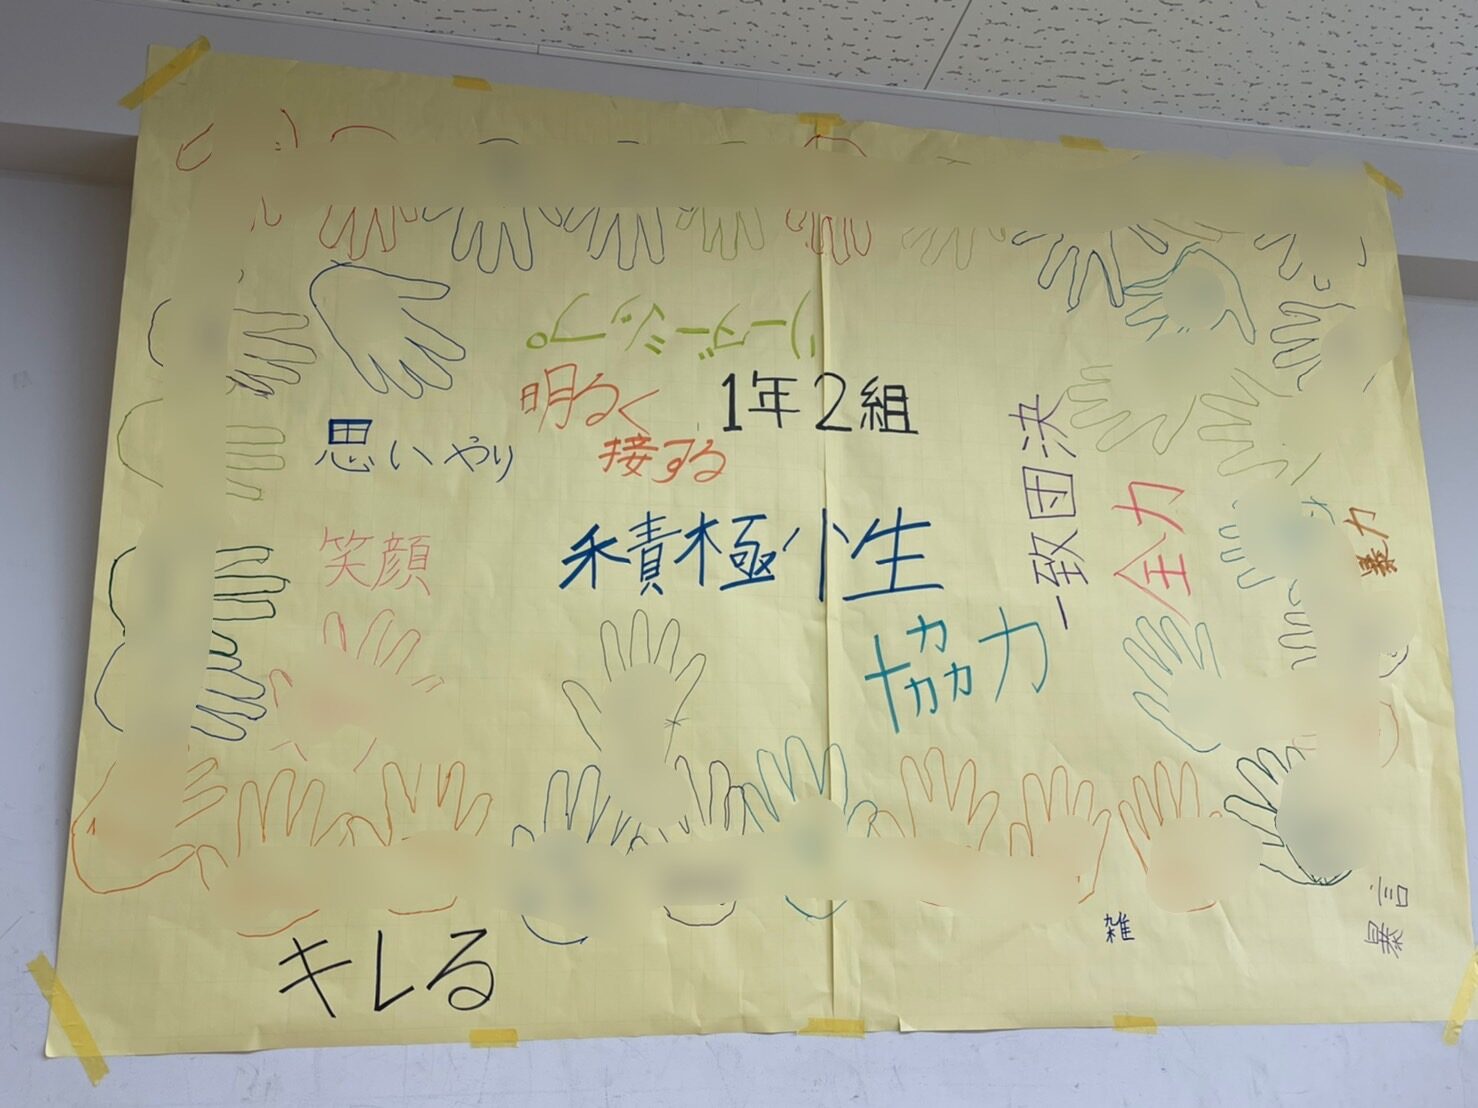 リーダーシップ。
明るく
接する
1年2組
思いやり
笑顔
積極性
一致団決
全力
協力
暴力
キレる
雑
暴言